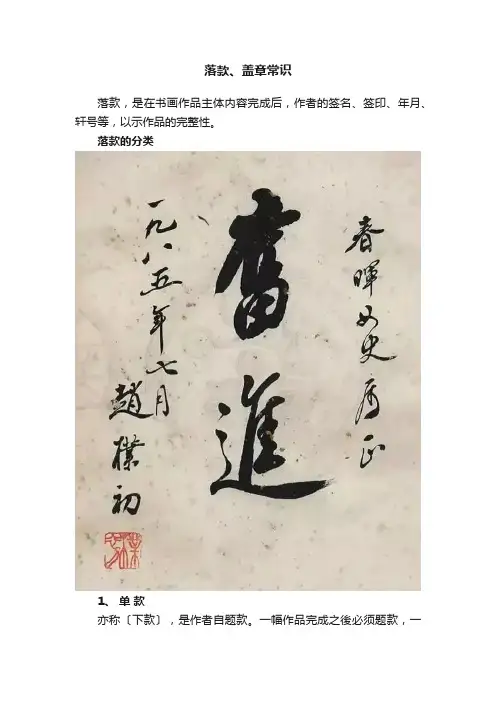 落款、盖章常识
落款，是在书画作品主体内容完成后，作者的签名、签印、年月、
轩号等，以示作品的完整性。
落款的分类
春暉女史属正
奮進
一九八五年七月
趙樸初
1、 单 款
亦称〔下款〕，是作者自题款。一幅作品完成之後必须题款，一